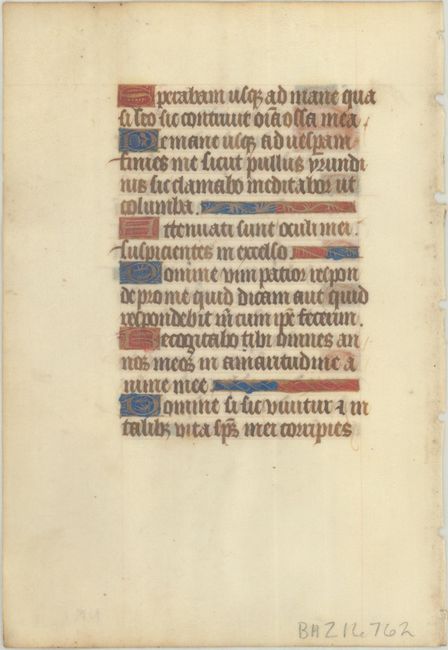 Sperabam usq; ad mane qua
si leo sic contriuit oīa ossa mea.
De mane usq; ad uesperam
finies me sicut pullus yrundi
nis sic clamabo meditabor ut
columba.
Attenuati sunt oculi mei.
suspicientes in excelso.
Domine vim patior respon
de pro me quid dicam aut quid
respondebit m̄ cum ip̄e fecerim.
Recogitabo tibi omnes an
nos meos in amaritudine a
nime mee.
Domine si sic viuitur ⁊ in
talib; vita sp̄s mei corripies